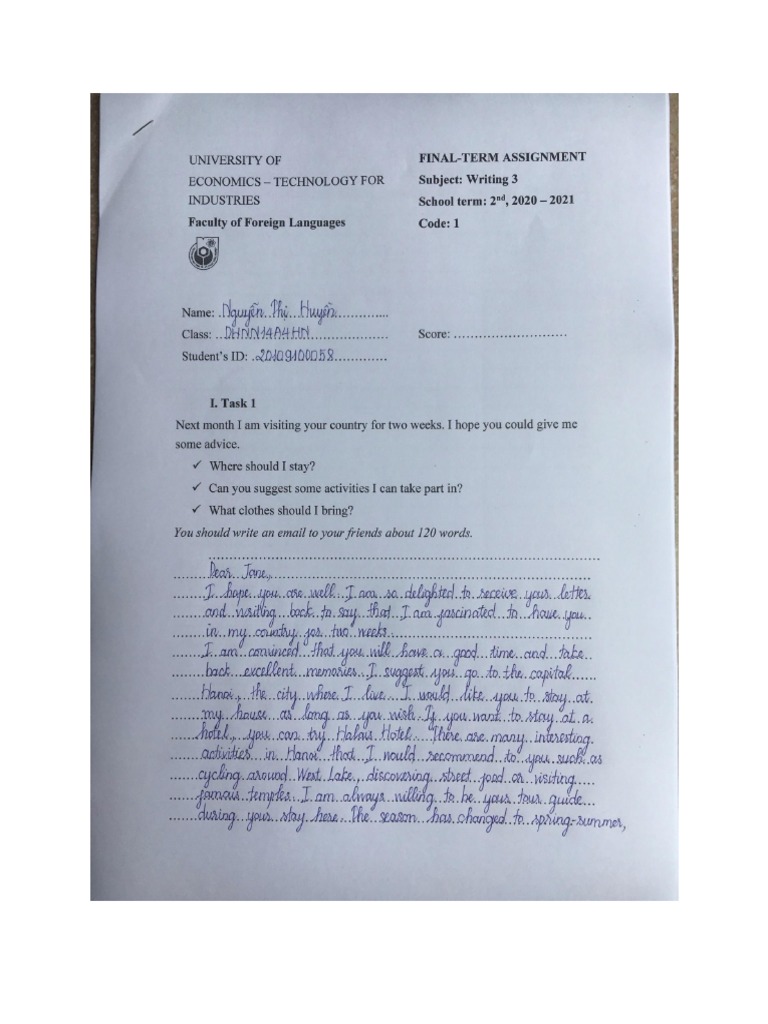 UNIVERSITY OF
ECONOMICS – TECHNOLOGY FOR
INDUSTRIES
Faculty of Foreign Languages
FINAL-TERM ASSIGNMENT
Subject: Writing 3
School term: 2nd, 2020 – 2021
Code: 1
Name: Nguyễn Thị Huyền
Class: DHNN14A4HN
Score:
Student's ID: 20109100058
I. Task 1
Next month I am visiting your country for two weeks. I hope you could give me
some advice.
✓ Where should I stay?
✓ Can you suggest some activities I can take part in?
✓ What clothes should I bring?
You should write an email to your friends about 120 words.
Dear Jane,
I hope you are well. I am so delighted to receive your letter
and writing back to say that I am fascinated to have you
in my country for two weeks.
I am convinced that you will have a good time and take
back excellent memories. I suggest you go to the capital
Hanoi, the city where I live. I would like you to stay at
my house as long as you wish. If you want to stay at a
hotel, you can try Halais Hotel. There are many interesting
activities in Hanoi that I would recommend to you such as
cycling around West Lake, discovering street food or visiting
famous temples. I am always willing to be your tour guide
during your stay here. The season has changed to spring-summer,